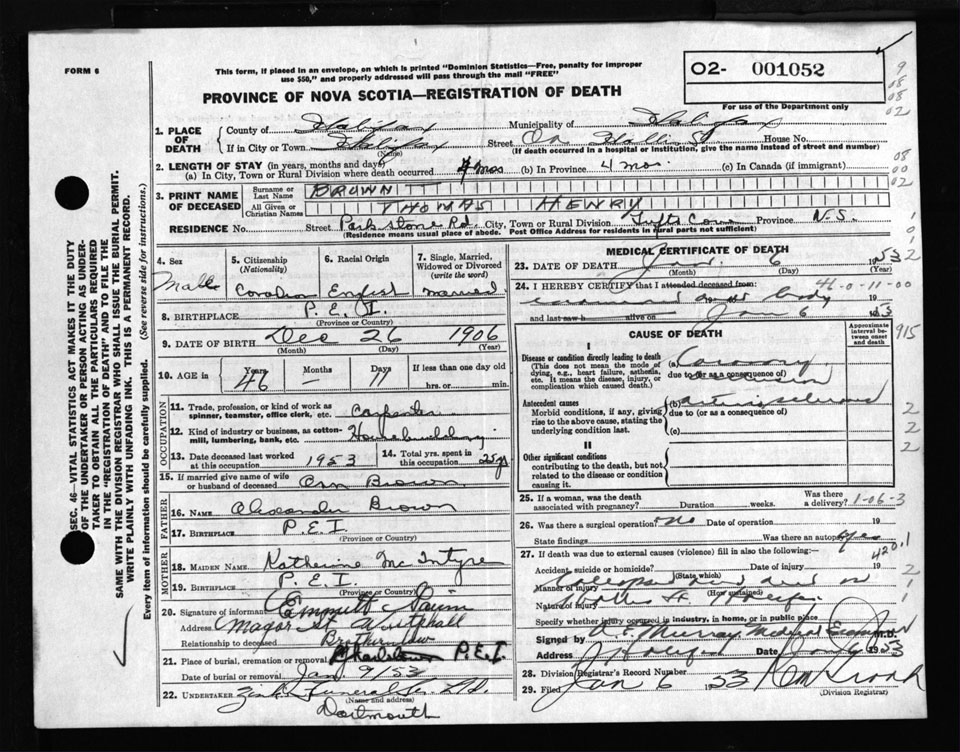 FORM 6
This form, if placed in an envelope, on which is printed "Dominion Statistics—Free, penalty for improper
use $50," and properly addressed will pass through the mail "FREE"
PROVINCE OF NOVA SCOTIA—REGISTRATION OF DEATH
02- 001052
For use of the Department only
9
08
08
02
08
00
02
1. PLACE OF DEATH
County of Halifax Municipality of Halifax
If in City or Town Halifax (Name) Street On Hollis St House No.
(If death occurred in a hospital or institution, give the name instead of street and number)
2. LENGTH OF STAY (in years, months and days)
(a) In City, Town or Rural Division where death occurred 4 mos (b) In Province 4 mos. (c) In Canada (if immigrant)
3. PRINT NAME OF DECEASED
Surname or Last Name BROWN
All Given or Christian Names THOMAS HENRY
RESIDENCE No. Street Park stone Rd. City, Town or Rural Division Tufts Cove Province N.S.
(Residence means usual place of abode. Post Office Address for residents in rural parts not sufficient)
4. Sex Male
5. Citizenship (Nationality) Canadian
6. Racial Origin English
7. Single, Married, Widowed or Divorced (write the word) Married
8. BIRTHPLACE P.E.I.
(Province or Country)
9. DATE OF BIRTH Dec 26 1906
(Month) (Day) (Year)
10. AGE in Years 46 Months — Days 11 If less than one day old hrs. or min.
OCCUPATION
11. Trade, profession, or kind of work as spinner, teamster, office clerk, etc. Carpenter
12. Kind of industry or business, as cotton-mill, lumbering, bank, etc. Housebuilding
13. Date deceased last worked at this occupation 1953
14. Total yrs. spent in this occupation 25 y
15. If married give name of wife or husband of deceased Ann Brown
FATHER
16. NAME Alexander Brown
17. BIRTHPLACE P.E.I.
(Province or Country)
MOTHER
18. MAIDEN NAME Katherine Mc Intyre
19. BIRTHPLACE P.E.I.
(Province or Country)
20. Signature of informant Emmett
Address Major St Westphal
Relationship to deceased Brother in law
21. Place of burial, cremation or removal Charlottetown P.E.I.
Date of burial or removal Jan 9/53
22. UNDERTAKER Zink Funeral Ser. Ltd.
(Name and address)
Dartmouth
MEDICAL CERTIFICATE OF DEATH
23. DATE OF DEATH Jan. 6 1953
(Month) (Day) (Year)
24. I HEREBY CERTIFY that I attended deceased from:
46-0-11-00
examined body 19
and last saw h alive on Jan 6 1953
CAUSE OF DEATH
Approximate interval between onset and death
915
I
Disease or condition directly leading to death
(This does not mean the mode of dying, e.g., heart failure, asthenia, etc. It means the disease, injury, or complication which caused death.)
(a) Coronary occlusion
due to (or as a consequence of)
Antecedent causes
Morbid conditions, if any, giving rise to the above cause, stating the underlying condition last.
(b) arteriosclerosis
due to (or as a consequence of)
(c)
II
Other significant conditions
contributing to the death, but not related to the disease or condition causing it.
2
2
2
25. If a woman, was the death associated with pregnancy? Duration weeks. Was there a delivery?
1-06-3
26. Was there a surgical operation? no Date of operation 19
State findings Was there an autopsy? yes
420.1
27. If death was due to external causes (violence) fill in also the following:—
Accident, suicide or homicide? Date of injury 19
(State which)
Manner of injury Collapsed and died on
(How sustained)
Nature of injury Hollis St. Halifax
Specify whether injury occurred in industry, in home, or in public place
Signed by Murray Medical Examiner M.D.
Address Halifax Date Jan 6 1953
28. Division Registrar's Record Number
29. Filed Jan 6 1953
(Division Registrar)
SEC. 46—VITAL STATISTICS ACT MAKES IT THE DUTY
OF THE UNDERTAKER OR PERSON ACTING AS UNDER-
TAKER TO OBTAIN ALL THE PARTICULARS REQUIRED
IN THE "REGISTRATION OF DEATH" AND TO FILE THE
SAME WITH THE DIVISION REGISTRAR WHO SHALL ISSUE THE BURIAL PERMIT.
WRITE PLAINLY WITH UNFADING INK. THIS IS A PERMANENT RECORD.
Every item of information should be carefully supplied. (See reverse side for instructions.)